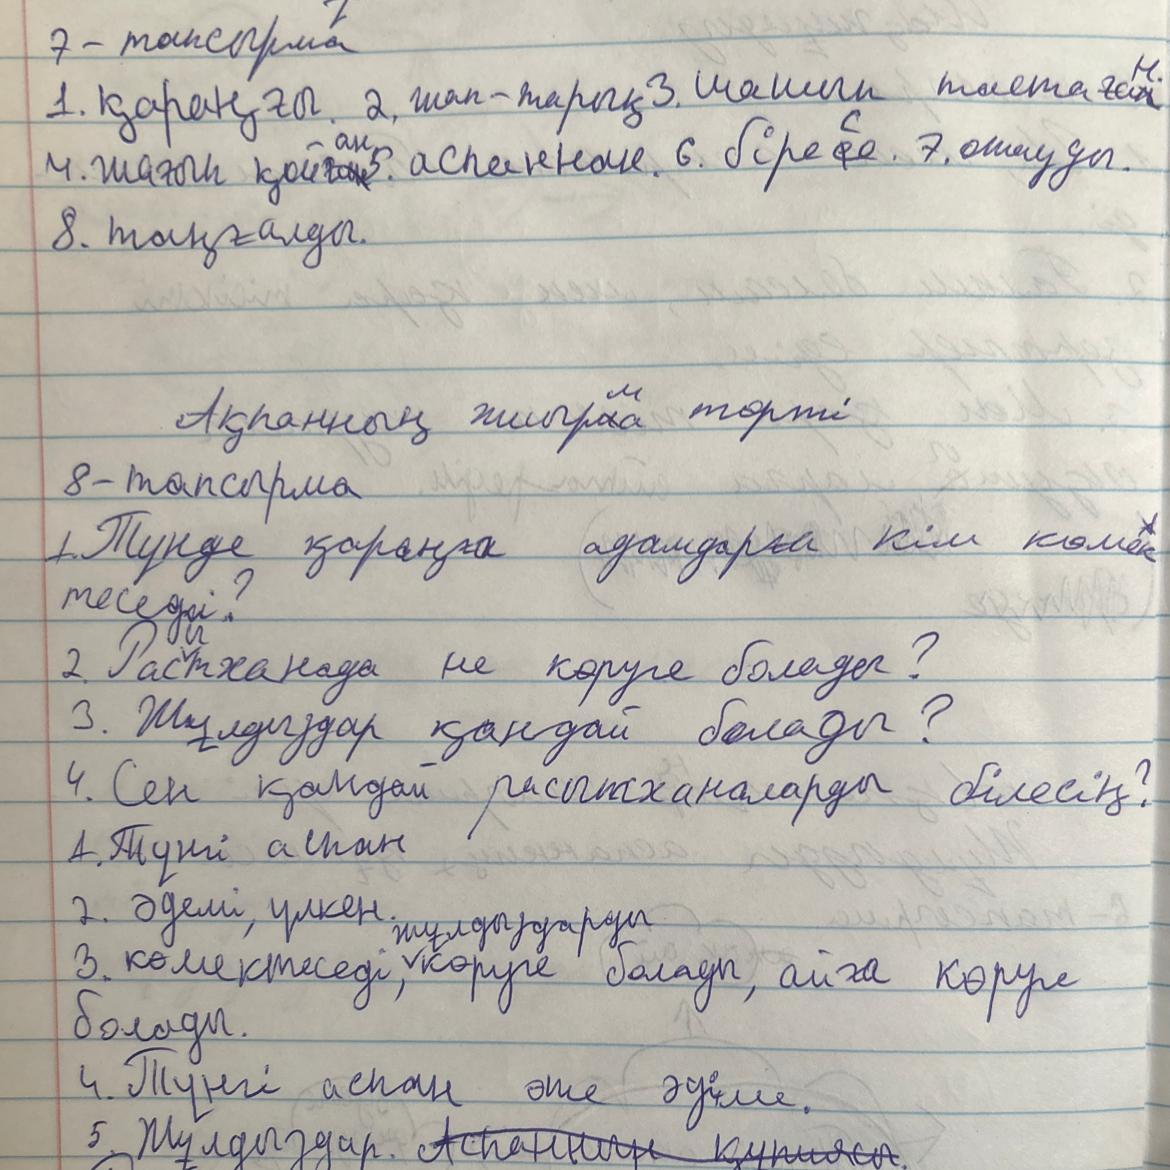 7-тапсырма
1. қараңғы. 2. шап-тарық 3. шашып тастаған.
4. жағып қойған 5. аспаннан. 6. біресе. 7. ояуды.
8. таңғалды.
Ақпанның жиырма төрті
8-тапсырма
1. Түнде қараңға адамдарға кім көмек
теседі?
2. Расытханада не көруге болады?
3. Жұлдыздар қандай болады?
4. Сен қандай расытханаларды білесің?
1. Түнгі аспан
2. әдемі, үлкен.
3. көмектеседі, жұлдыздарды көруге болады, айға көруге
болады.
4. Түнгі аспан өте әдіме.
5. Жұлдыздар. Аспанның құпиясы.